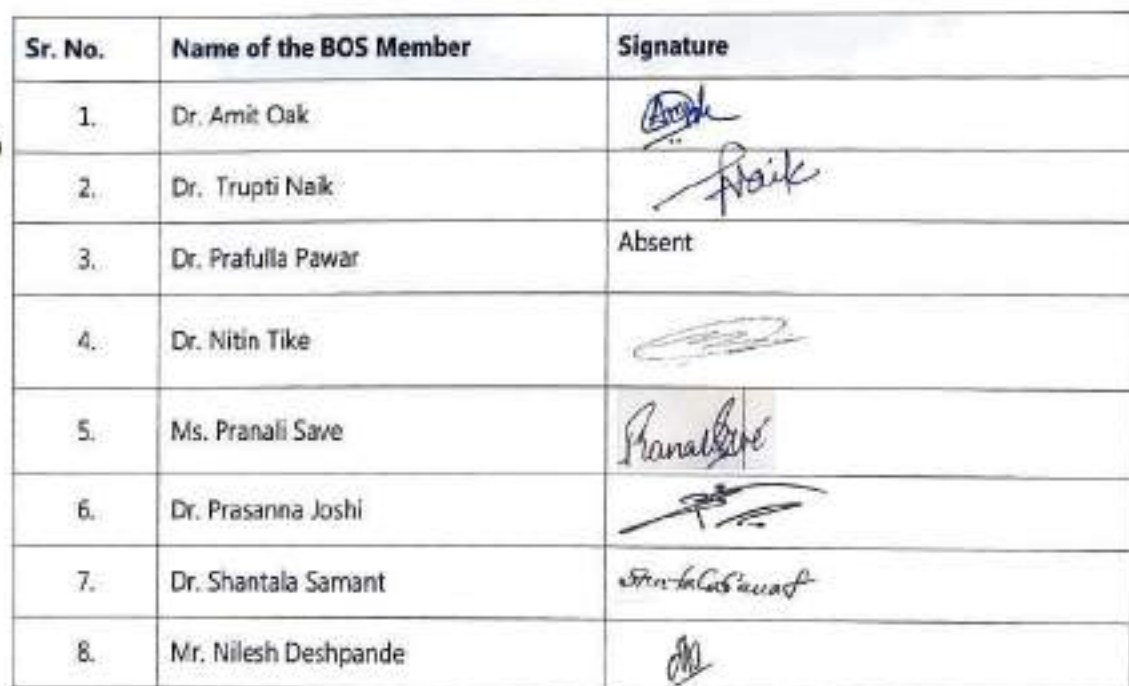 Sr. No. Name of the BOS Member Signature
1. Dr. Amit Oak
2. Dr. Trupti Naik Naik
3. Dr. Prafulla Pawar Absent
4. Dr. Nitin Tike
5. Ms. Pranali Save Pranali Save
6. Dr. Prasanna Joshi
7. Dr. Shantala Samant
8. Mr. Nilesh Deshpande